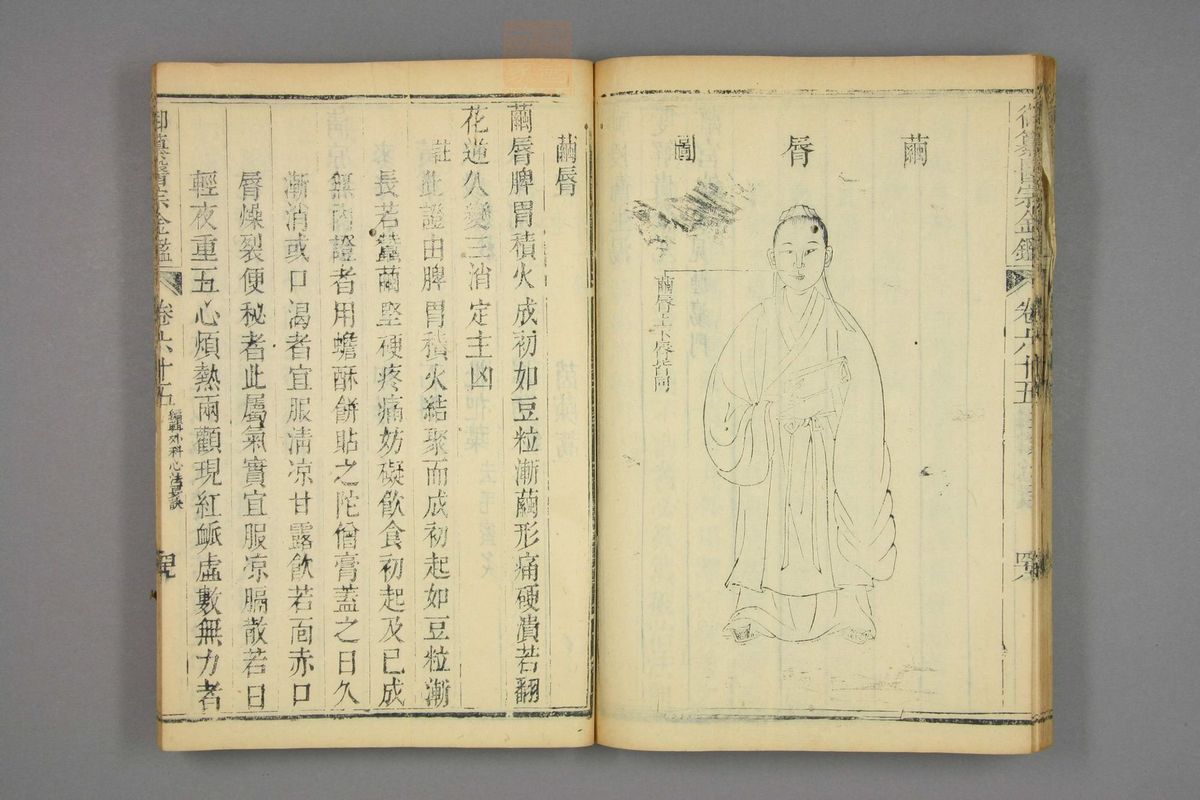 御纂醫宗金鑑 卷六十五 四六
繭脣圖
繭脣上下脣皆同
繭脣
繭脣脾胃積火成初如豆粒漸繭形痛硬潰若翻
花逆久變三消定主凶
註此證由脾胃積火結聚而成初起如豆粒漸
長若蠶繭堅硬疼痛妨礙飲食初起及已成
無內證者用蟾酥餅貼之陀僧膏蓋之日久
漸消或口渴者宜服清凉甘露飲若面赤口
脣燥裂便秘者此屬氣實宜服凉膈散若日
輕夜重五心煩熱兩顴現紅衇虛數無力者
御纂醫宗金鑑 卷六十五 編輯外科心法要訣